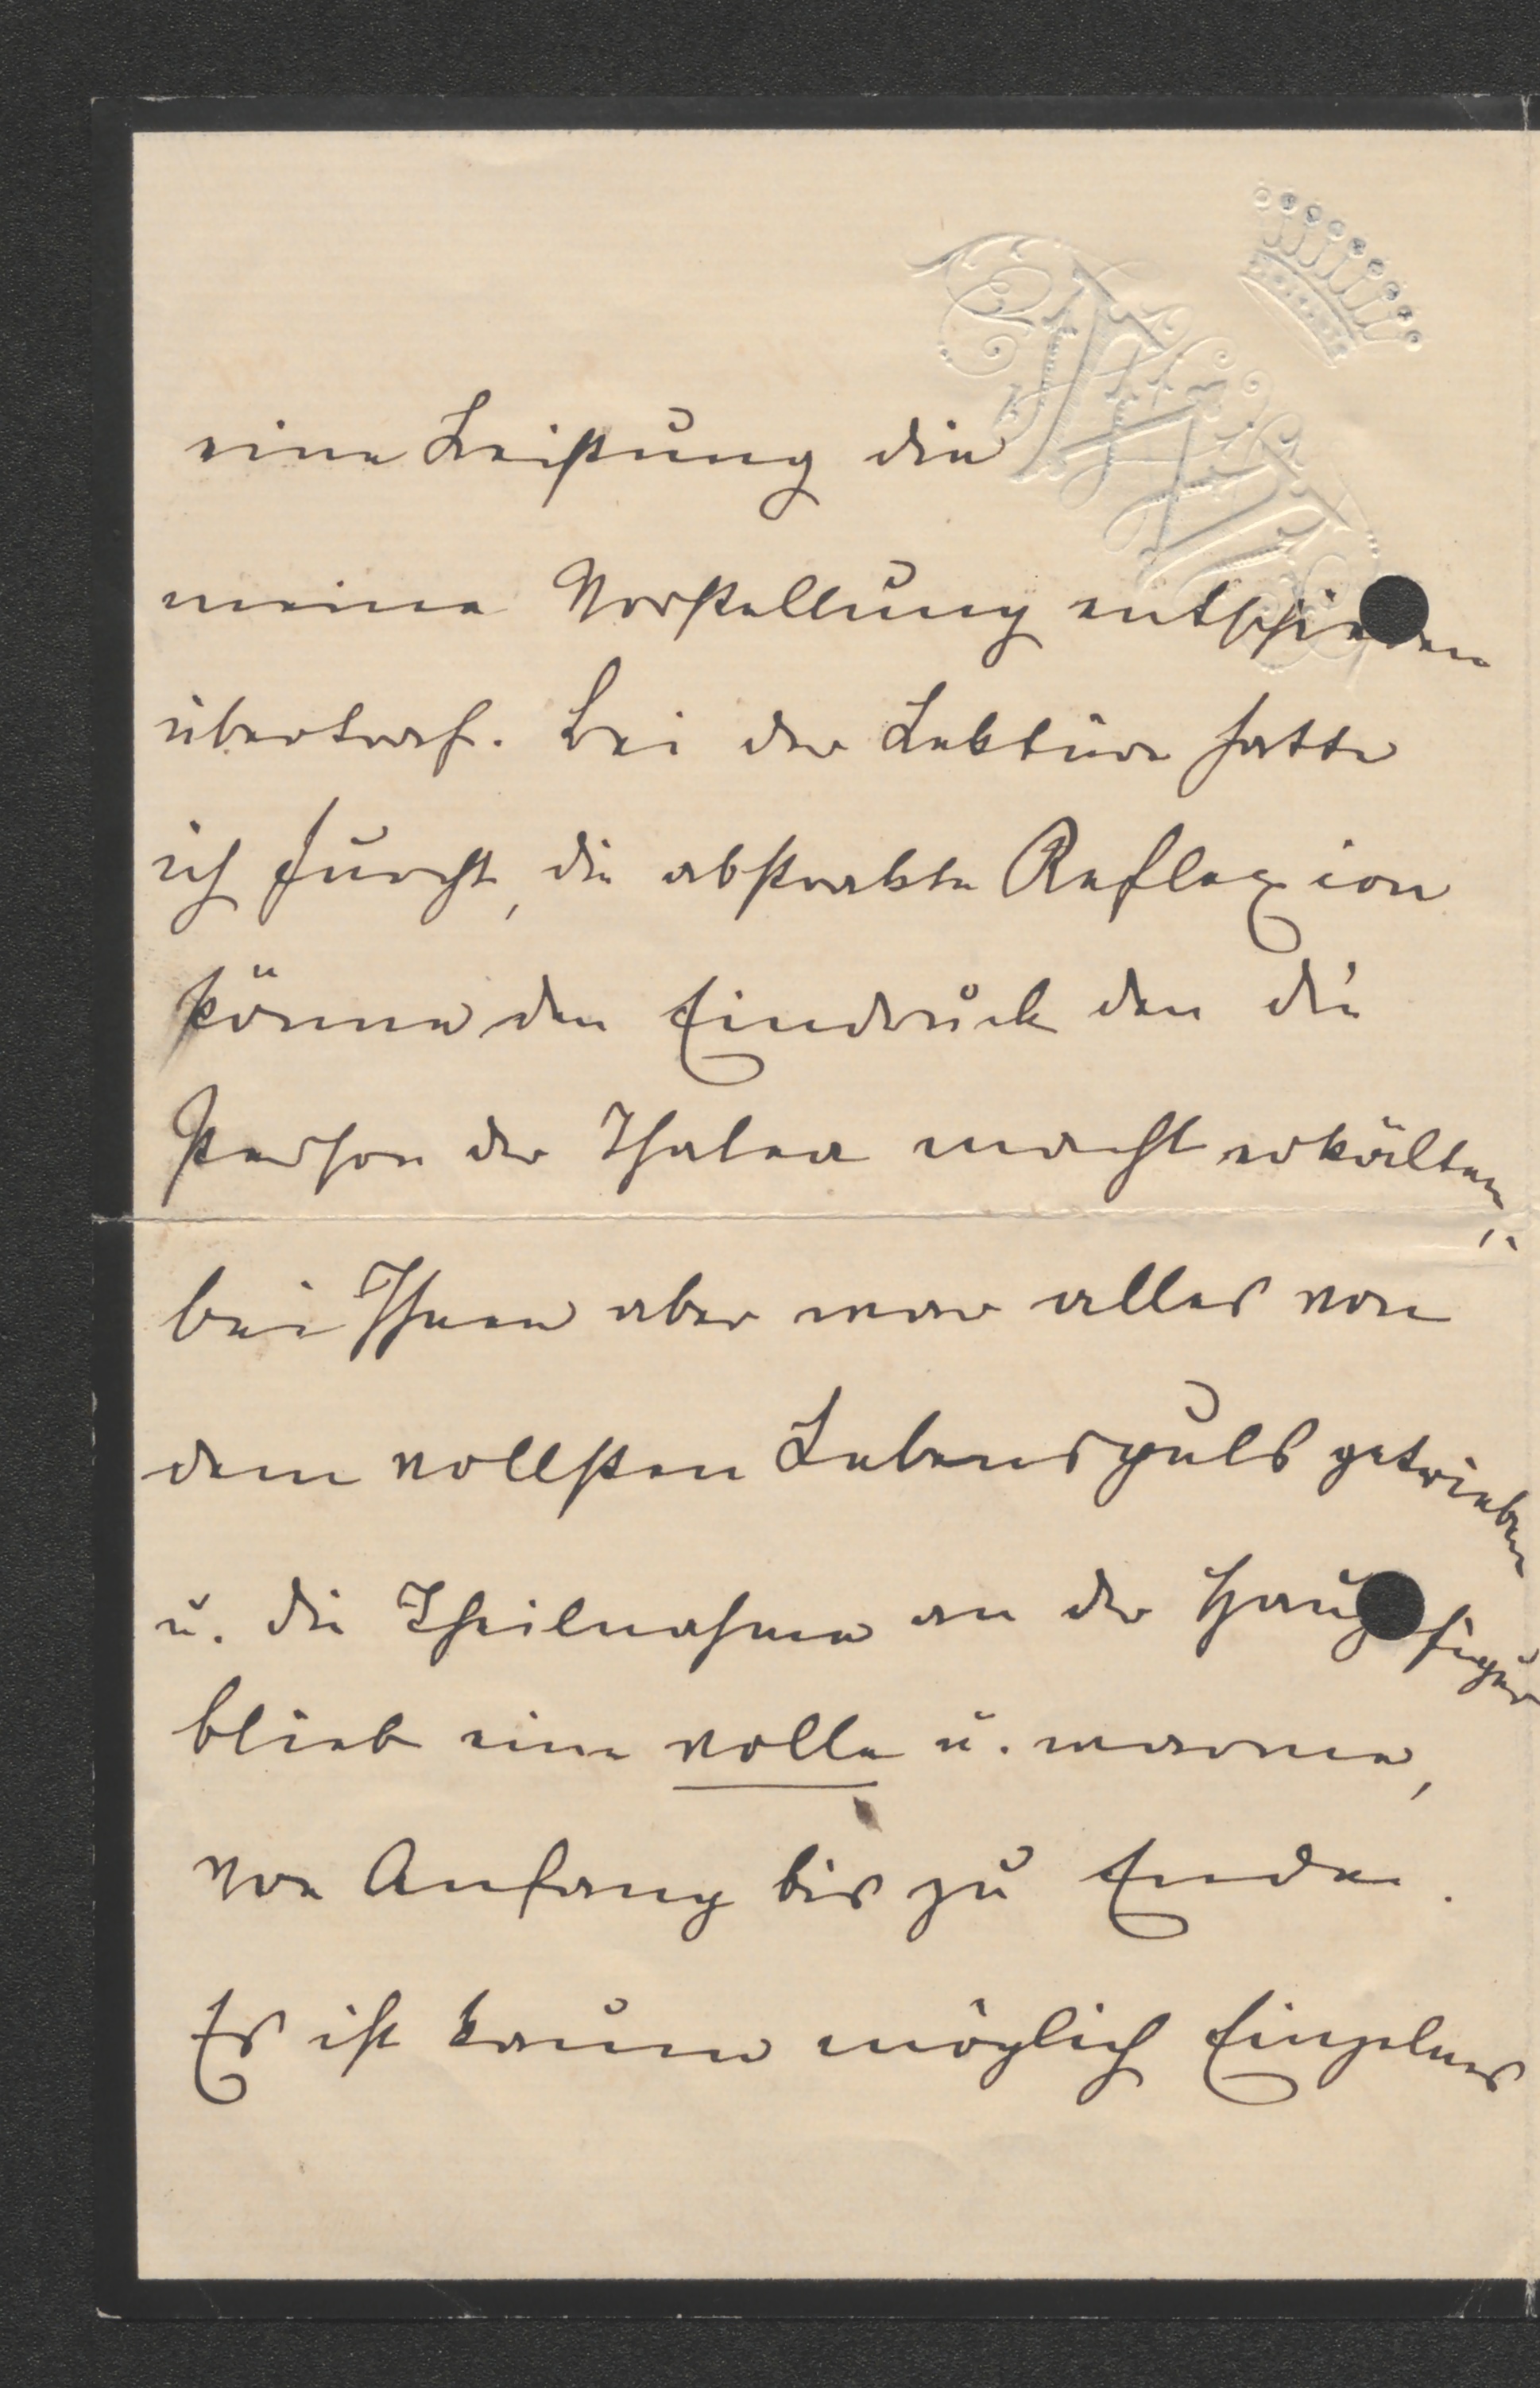 eine Leistung die
meine Vorstellung entschieden
übertraf. Bei der Lektüre hatte
ich Furcht, die abstrakte Reflexion
könne den Eindruck den die
Person der Thalea macht erkälten,
bei Ihnen aber war alles von
dem vollsten Lebenspuls getrieben
u. die Theilnahme an der Hauptfigur
blieb eine volle u. warme,
von Anfang bis zu Ende.
Es ist kaum möglich Einzelnes